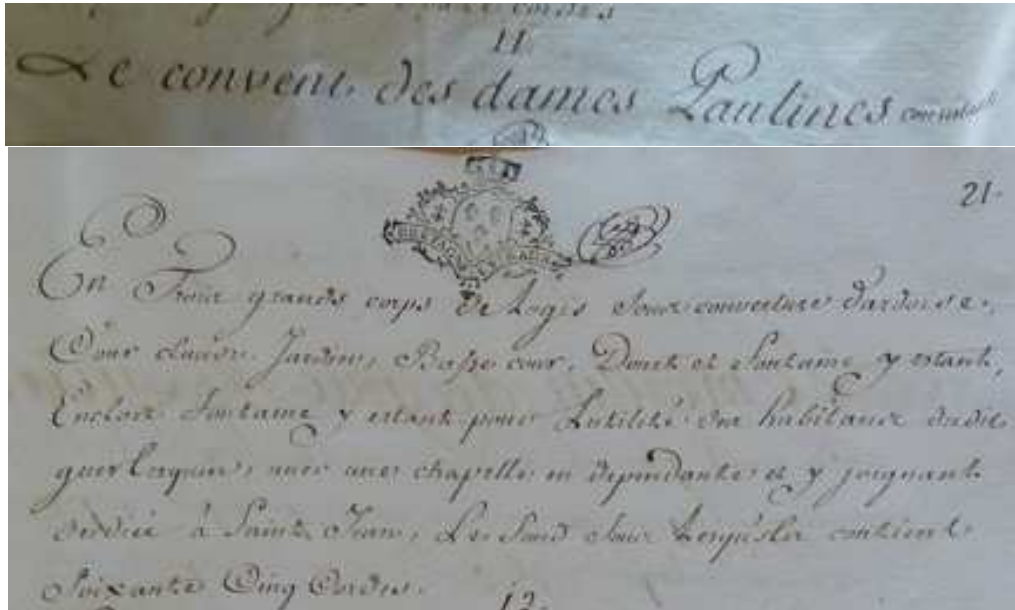 11.
Le couvent des dames Paulines consiste
21.
En Trois grands corps de Logis sous couverture d'ardoise.
Cour close. Jardin, Basse cour, Douet et fontaine y estant,
Enclose fontaine y estant pour Lutilité des habitans dudit
guerlesquin, avec une chapelle en dependante et y joignant
dediée à Saint Jean, Le fond sous Lesquels contient
Soixante Cinq Cordes.
12.